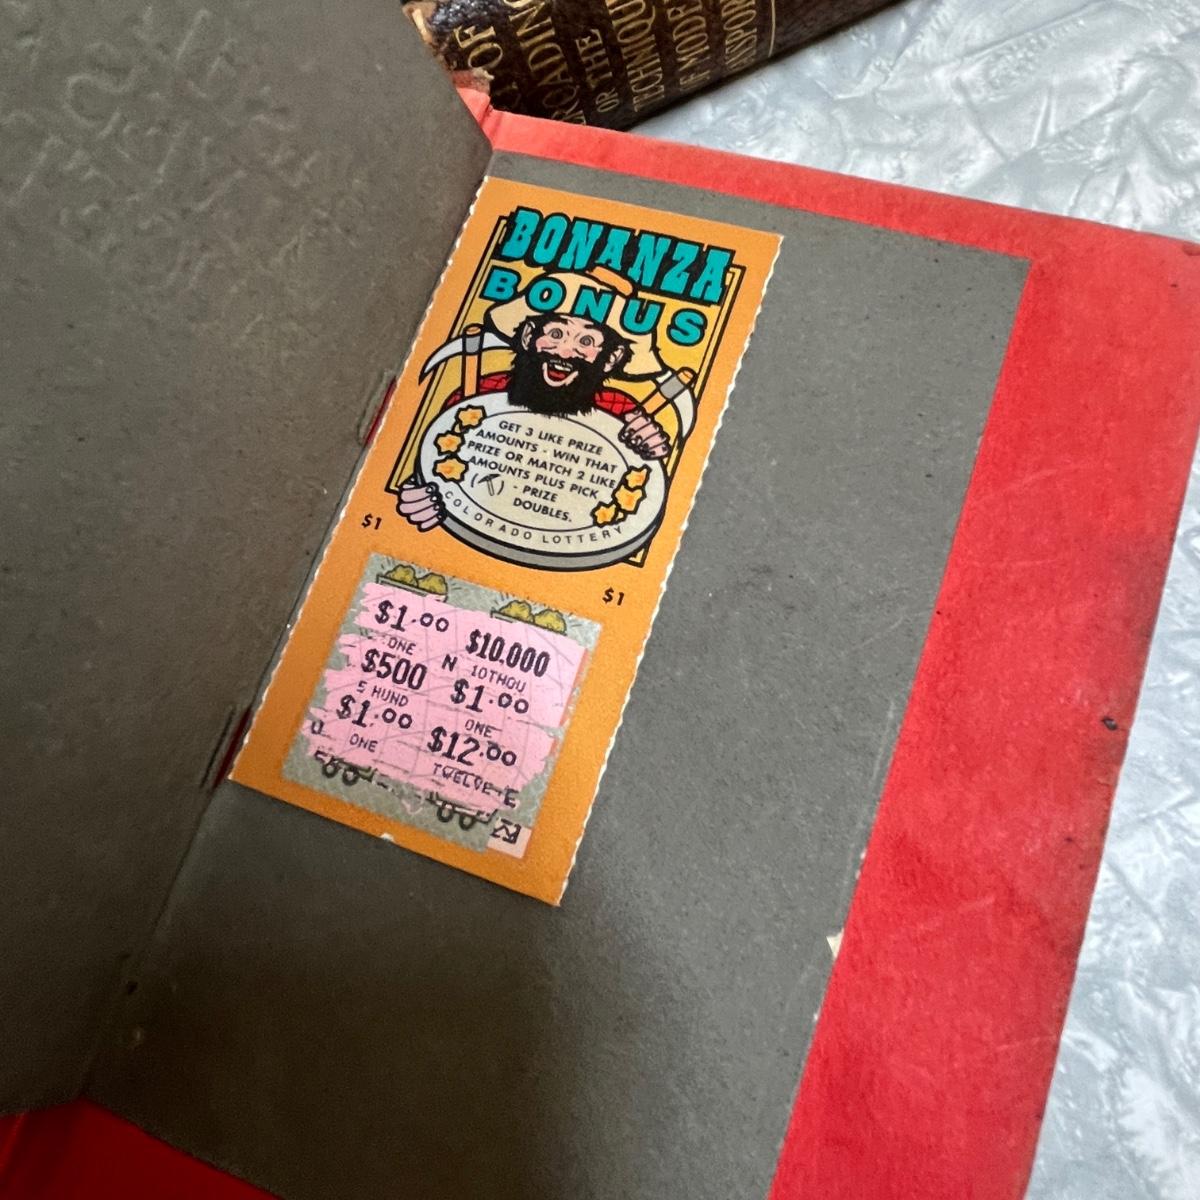 OF
OR THE
TECHNIQU
OF MODE
BONANZA
BONUS
GET 3 LIKE PRIZE
AMOUNTS - WIN THAT
PRIZE OR MATCH 2 LIKE
AMOUNTS PLUS PICK
( ) - PRIZE
DOUBLES.
COLORADO LOTTERY
$1
$1
$1.00 $10,000
ONE N 10THOU
$500 $1.00
5 HUND ONE
$1.00 $12.00
U ONE TWELVE E